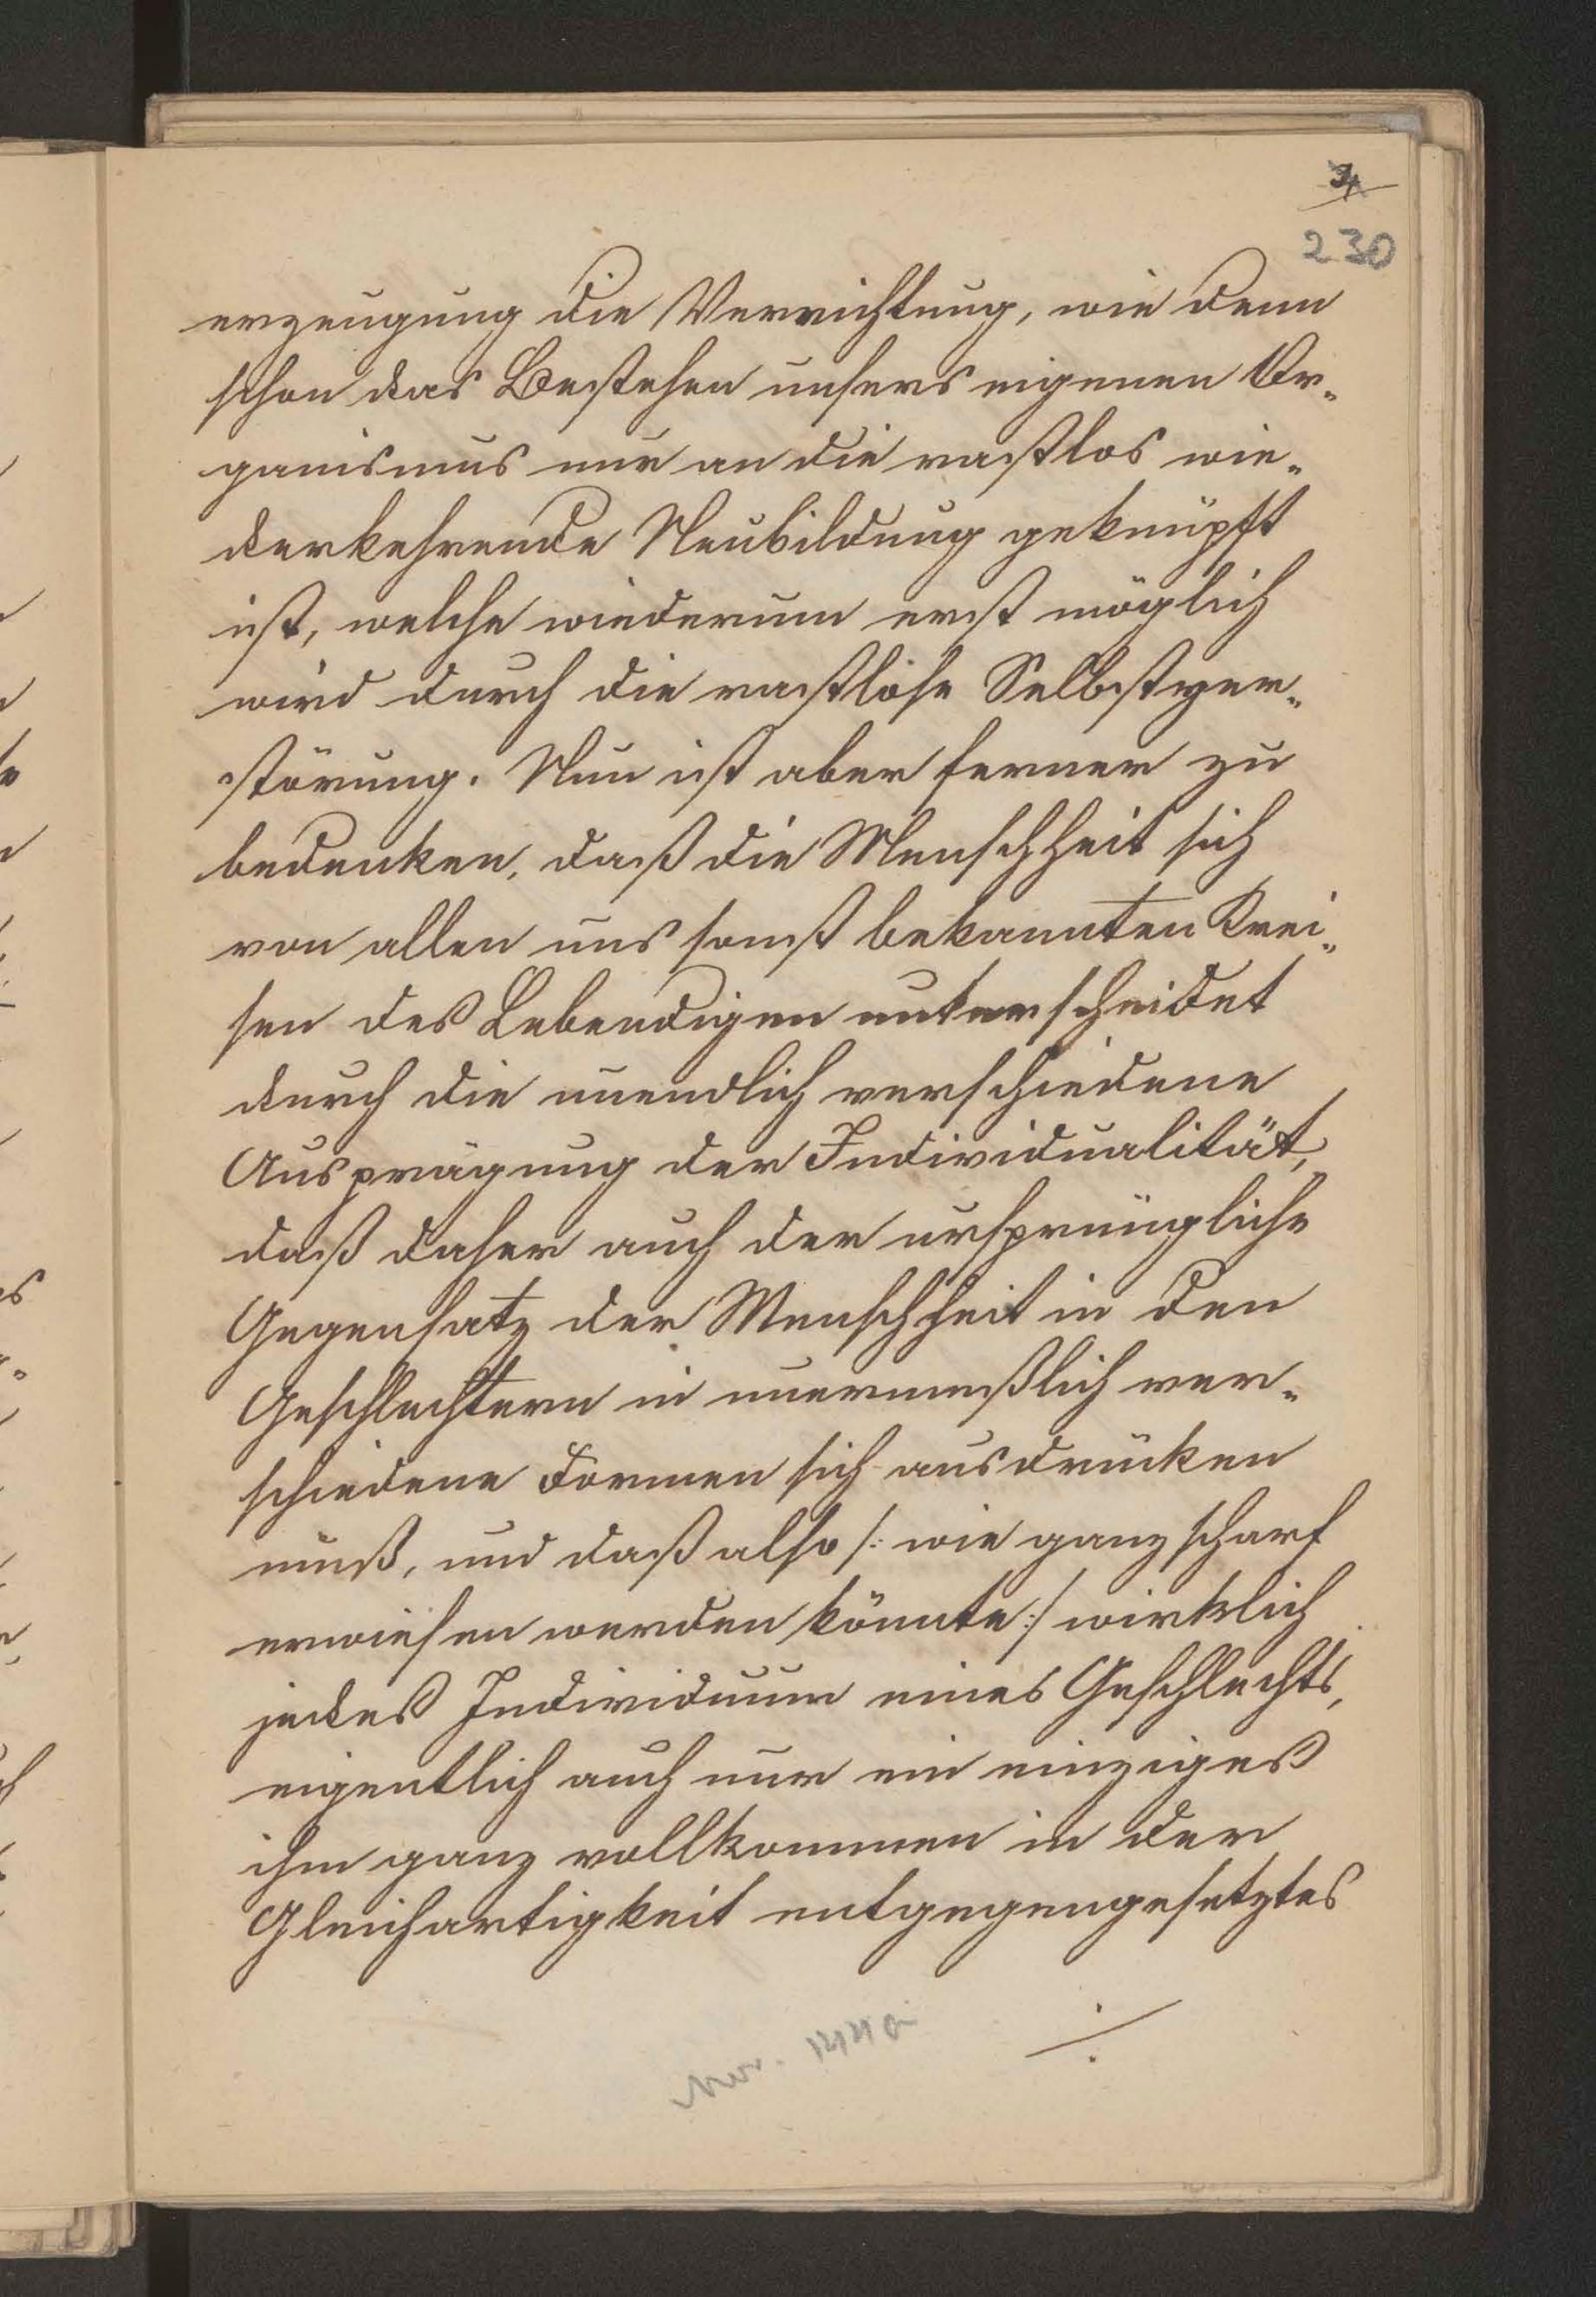 230
erzeugung die Vernichtung, wie denn
schon das Bestehen unsers eigenen Or-
ganismus nur an die rastlos wie-
derkehrende Neubildung geknüpft
ist, welche wiederum erst möglich
wird durch die rastlose Selbstzer-
störung. Nun ist aber ferner zu
bedenken, daß die Menschheit sich
von allen uns sonst bekannten Krei-
sen des Lebendigen unterscheidet
durch die unendlich verschiedene
Ausprägung der Individualität,
daß daher auch der ursprüngliche
Gegensatz der Menschheit in den
Geschlechtern in unermeßlich ver-
schiedene Formen sich ausdrücken
muß, und daß also /: wie ganz scharf
erwiesen werden könnte :/ wirklich
jedes Individuum eines Geschlechts,
eigentlich auch nur ein einziges
ihm ganz vollkommen in der
Gleichartigkeit entgegengesetztes